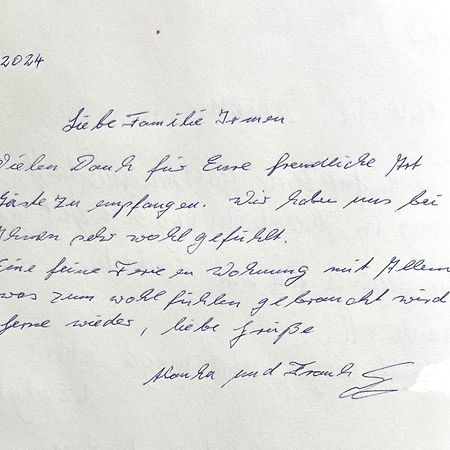 2024
Liebe Familie Irmen
Vielen Dank für Eure freundliche Art
Gäste zu empfangen. Wir haben uns bei
Ihnen sehr wohl gefühlt.
Eine feine Ferien Wohnung mit Allem
was zum wohl fühlen gebraucht wird
Gerne wieder, liebe Grüße
und Frank